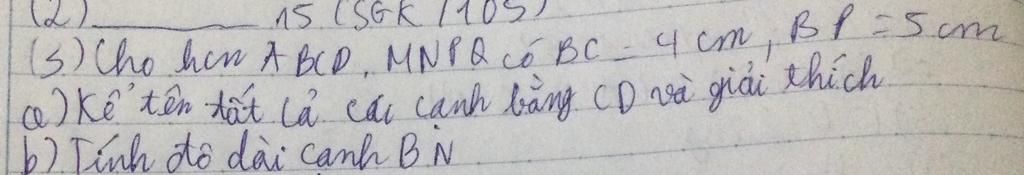 (2) 15 (SGK / 105)
(3) Cho hcn ABCD. MNPQ có BC = 4 cm, BP = 5 cm
a) Kể tên tất cả các cạnh bằng CD và giải thích
b) Tính độ dài cạnh BN